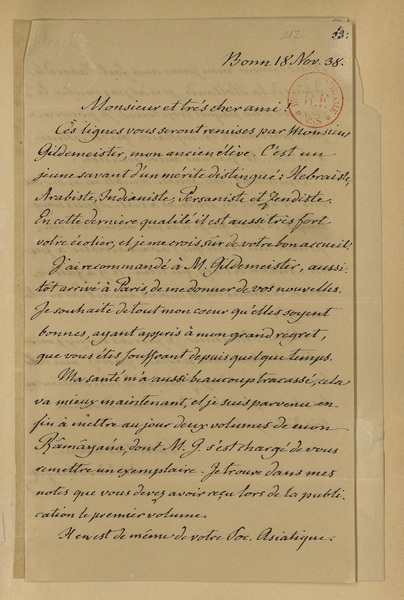 312 53:
Bonn 18 Nov. 38.
Monsieur et très cher ami!
Ces lignes vous seront remises par Monsieur
Gildemeister, mon ancien élève. C'est un
jeune savant d'un mérite distingué: Hebraiste,
Arabiste, Indianiste, Persaniste et Zendiste.
En cette dernière qualité il est aussi très fort
votre écolier, et je me crois sûr de votre bon accueil.
J'ai recommandé à M. Gildemeister, aussi-
tôt arrivé à Paris, de me donner de vos nouvelles.
Je souhaite de tout mon coeur qu'elles soyent
bonnes, ayant appris à mon grand regret,
que vous êtes souffrant depuis quelque temps.
Ma santé m'a aussi beaucoup tracassé, cela
va mieux maintenant, et je suis parvenu en-
fin à mettre au jour deux volumes de mon
Râmâyańa, dont M. G. s'est chargé de vous
remettre un exemplaire. Je trouve dans mes
notes que vous devez avoir reçu lors de la publi-
cation le premier volume.
Il en est de même de votre Soc. Asiatique.